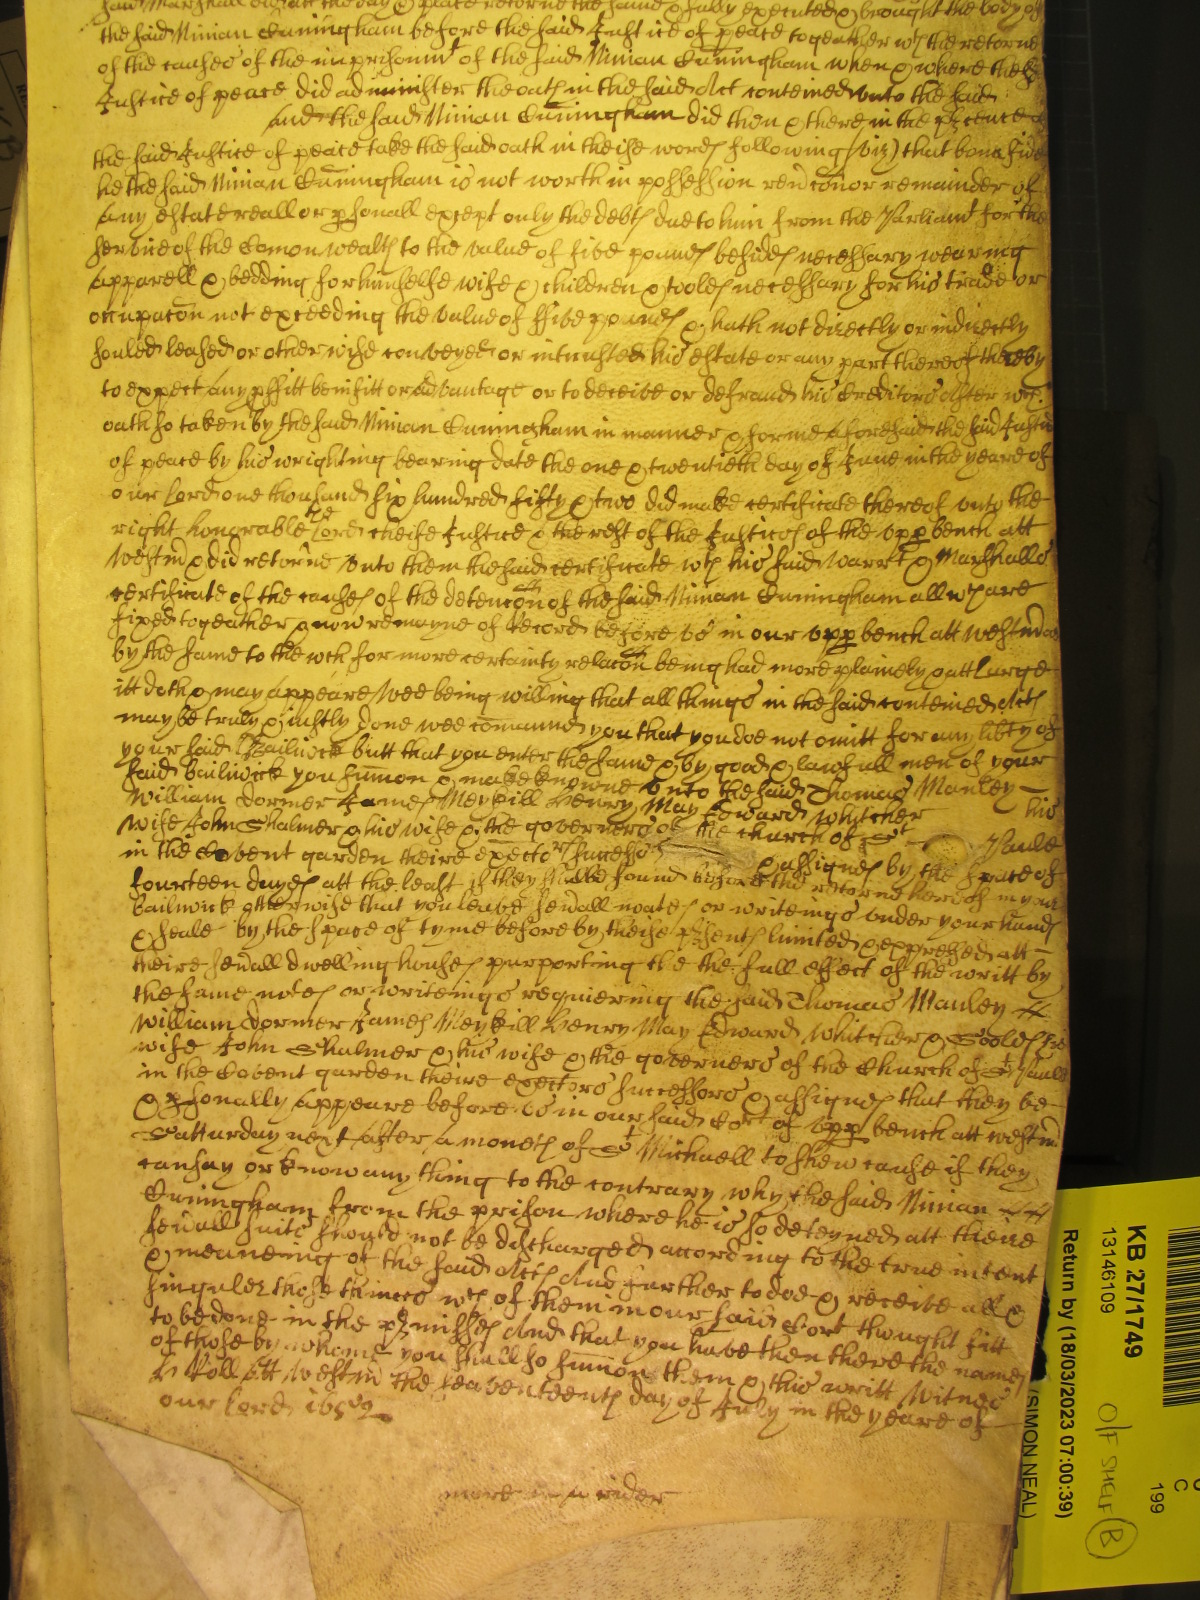 said Marshall did att the day & place retorne the same & fully executed & brought the body of
the said Ninian Cuningham before the said Justice of peace togeather wth the retorne
of the causes of the imprisonmt of the said Ninian Cuningham when & where the sd
Justice of peace did administer the oath in the said Act conteined unto the said
And the said Ninian Cuningham did then & there in the p̱sence of
the said Justice of peace take the said oath in theise wordes following (viz) that bona fide
he the said Ninian Cuningham is not worth in possession revcon or remainder of
any estate reall or p̱sonall except only the debtes due to him from the Parliamt for the
service of the Comonwealth to the value of five poundes besides necessary wearing
apparell & bedding for himselfe wife & children & tooles necessary for his trade or
occupacon not exceeding the value of ffive poundes & hath not directly or indirectly
soulde leased or otherwise conveyed or intrusted his estate or any part thereof thereby
to expect any p̱fitt benifitt or advantage or to deceive or defraud his Creditors After wch
oath so taken by the said Ninian Cuningham in manner & forme aforesaid the said Justice
of peace by his wrighting bearing date the one & twentieth day of June in the yeare of
our Lord one thousand six hundred fifty & two did make certificate thereof unto the
right honorable the Lord cheife Justice & the rest of the Justices of the upp̱ bench att
Westmr & did retorne unto them the said certificate wth his said warrt & Marshalls
certificate of the causes of the detencon of the said Ninian Cuningham all wch are
fixed togeather & now remayne of Record before us in our upp̱ bench att Westmr as
by the same to the wch for more certainty relacon being had more plainely & att Large
itt doth & may appeare Wee being willing that all things in the said conteined Acts
may be truly & justly done wee comaund you that you doe not omitt for any libty of
your said Bailiwick butt that you enter the same & by good & lawfull men of your
said bailiwick you sumon & make knowne unto the said Thomas Manley
William Dormer James Meykill Henry May Edward Whitcher his
wife John Shalmer & his wife & the governers of the church of St Paule
in the Covent garden theire exectors Successo & assignes by the space of
fourteen dayes att the least if they shalbe found before the retorne hereof in your
bailiwick otherwise that you leave severall noates or writeings under your hand
& seale by the space of tyme before by theise p̱sents limited & expressed att
theire severall dwelling houses purporting the full effect of the writt by
the same notes or writeings requiering the said Thomas Manley
William Dormer James Meykill Henry May Edward Whitcher &
wife John Shalmer & his wife & the governers of the Church of St Paules
in the Covent garden theire exectors successors & assignes that they be
& p̱sonally appeare before us in our said Cort of upp̱ bench att Westmr
Satturday next after a moneth of St Michaell to shew cause if they
can say or know any thing to the contrary why the said Ninian
Cuningham from the prison where he is so deteyned att theire
severall suits should not be discharged according to the true intent
& meaneing of the said Acts And further to doe & receive all &
singuler those thinges wch of them in our said Cort thought fitt
to be done in the p̱misses And that you have then there the names
of those by whome you shall so sumon them & this writt Witnes
H Roll att Westmr the seaventeenth day of July in the yeare of
our Lord 1652
more in a rider
KB 27/1749
13146109
Return by (18/03/2023 07:00:39)
(SIMON NEAL)
O/F SHELF B
C
199